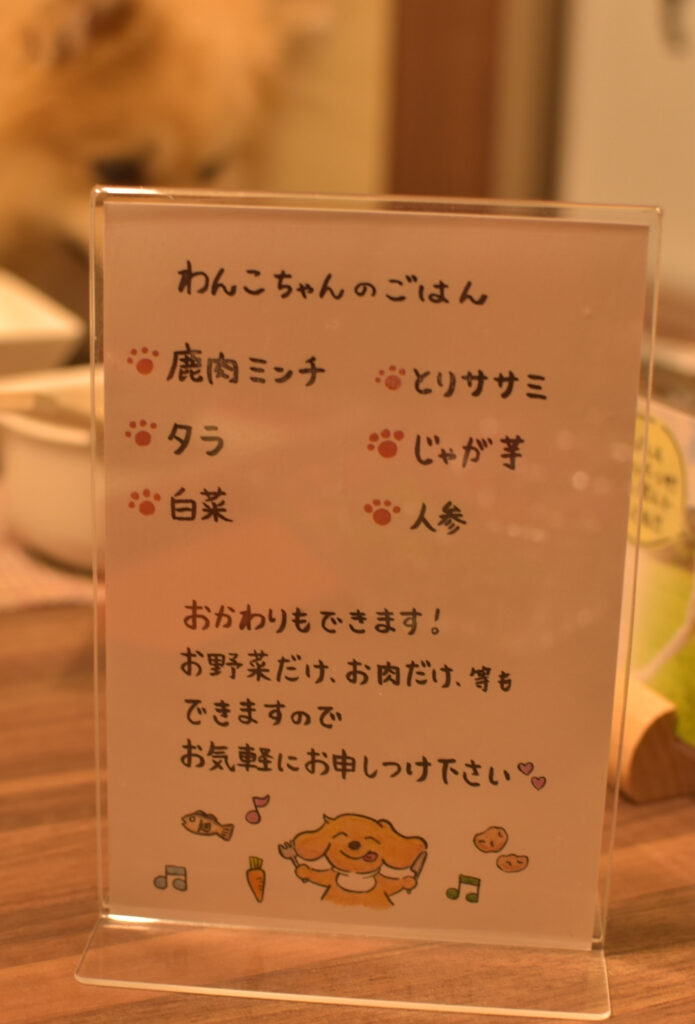 わんこちゃんのごはん
鹿肉ミンチ とりササミ
タラ じゃが芋
白菜 人参
おかわりもできます!
お野菜だけ、お肉だけ、等も
できますので
お気軽にお申しつけ下さい